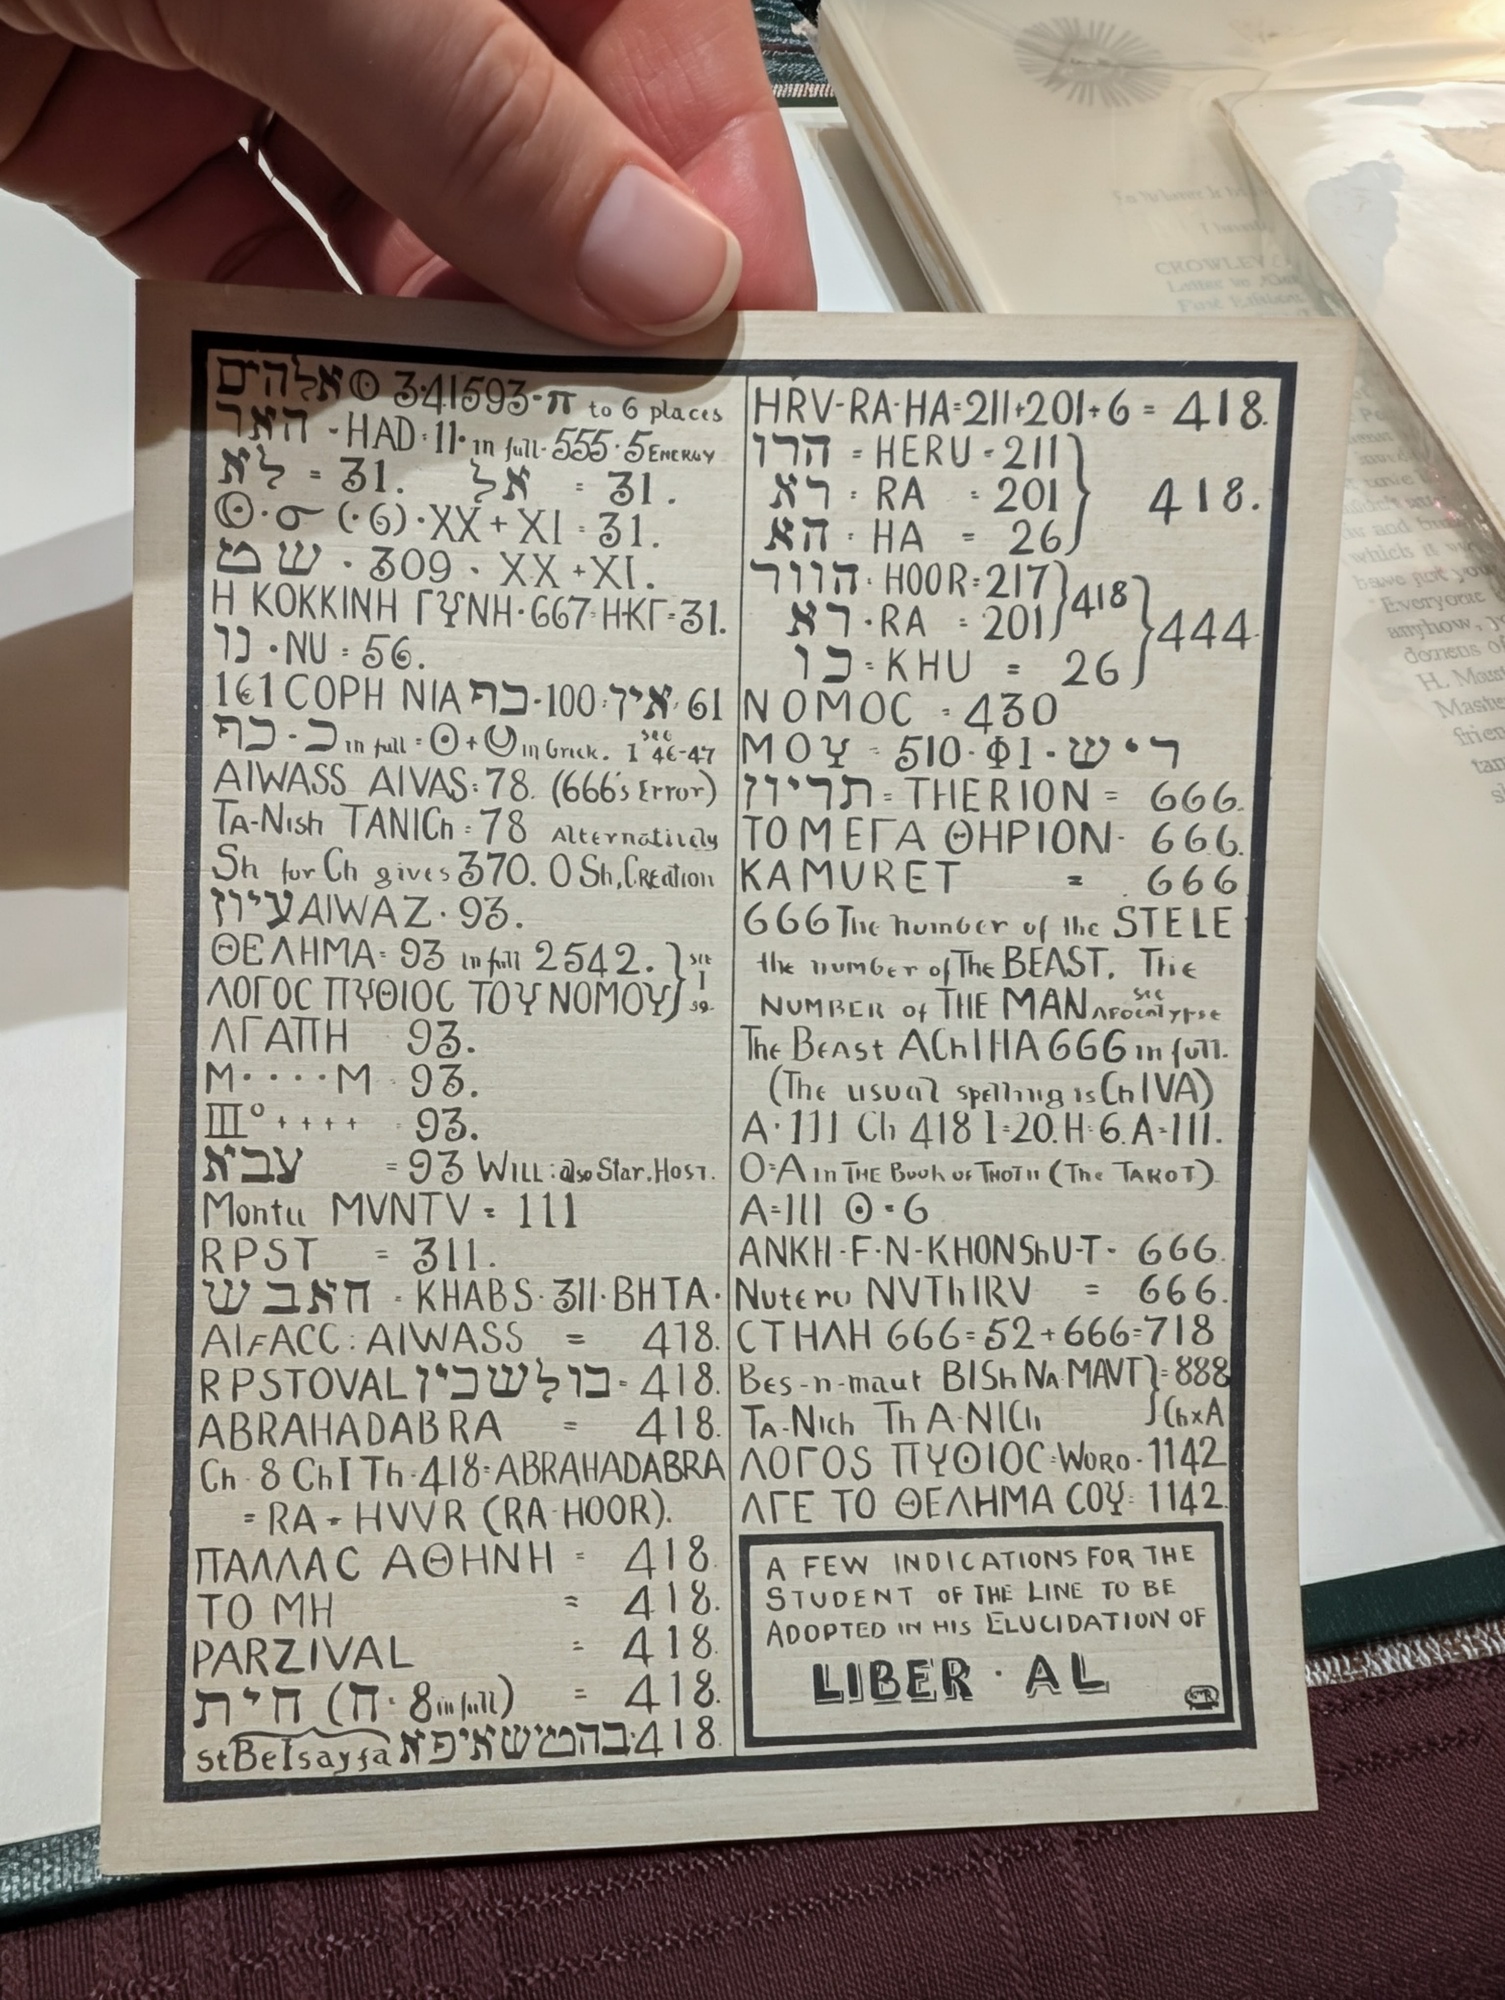 אלהים ☉ 3·41593·π to 6 places
האד · HAD · 11 · in full · 555 · 5 ENERGY
לא = 31. אל = 31.
☉·σ (·6)·XX + XI = 31.
שט · 309 · XX + XI.
Η ΚΟΚΚΙΝΗ ΓΥΝΗ·667·ΗΚΓ=31.
נו · NU = 56.
1€1 COPH NIA כף·100·איך·61
כף · כ in full = ☉ + in Greek. see I 46-47
AIWASS AIVAS: 78. (666's Error)
TA-Nish TANICh = 78 Alternatively
Sh for Ch gives 370. O Sh, Creation
עיוז AIWAZ · 93.
ΘΕΛΗΜΑ = 93 in full 2542. } see I
ΛΟΓΟC ΠΥΘΙΟC ΤΟΥ ΝΟΜΟΥ }
ΑΓΑΠΗ 93.
M····M 93.
III° ++++ 93.
עבא = 93 WILL: also Star. Host.
Montu MVNTV = 111
RPST = 311.
האבש · KHABS · 311 · BHTA ·
AIFACC: AIWASS = 418.
RPSTOVAL כולשכין = 418.
ABRAHADABRA = 418.
Ch · 8 Ch I Th · 418 = ABRAHADABRA
= RA - HVVR (RA-HOOR).
ΠΑΛΛΑC ΑΘΗΝΗ = 418.
ΤΟ ΜΗ = 418.
PARZIVAL = 418.
חית (ח · 8 in full) = 418.
stBeIsayfa בהטשאיפא · 418.
HRV-RA-HA = 211+201+6 = 418.
הרו = HERU = 211
רא = RA = 201 } 418.
הא · HA = 26
הוור · HOOR = 217
רא · RA = 201 } 418 } 444.
כו = KHU = 26
ΝΟΜΟC = 430
ΜΟΥ = 510 · ΦΙ · ריש
תריון = THERION = 666.
ΤΟ ΜΕΓΑ ΘΗΡΙΟΝ · 666.
KAMURET = 666
666 The number of the STELE
the number of The BEAST. The
NUMBER of THE MAN see Apocalypse
The Beast AChIHA 666 in full.
(The usual spelling is ChIVA)
A·111 Ch 418 I=20. H·6. A=111.
O=A in THE Book of THOTH (The TAROT)
A=111 ☉ = 6
ANKH-F-N-KHONShU-T · 666.
Nuteru NVThIRV = 666.
CTHΛH 666 = 52 + 666 = 718
Bes-n-maut BISh Na MAVT } = 888
TA-Nich Th A-NICh } Ch x A
ΛΟΓΟS ΠΥΘΙΟC = WORD · 1142
ΛΓΕ ΤΟ ΘΕΛΗΜΑ CΟΥ = 1142.
A FEW INDICATIONS FOR THE
STUDENT OF THE LINE TO BE
ADOPTED IN HIS ELUCIDATION OF
LIBER · AL
CROWLEY
First Edition
Everyone
anyhow,